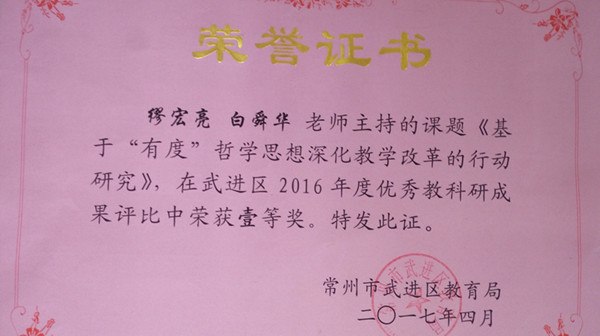 荣誉证书
缪宏亮 白舜华 老师主持的课题《基
于“有度”哲学思想深化教学改革的行动
研究》，在武进区2016年度优秀教科研成
果评比中荣获壹等奖。特发此证。
常州市武进区教育局
二〇一七年四月